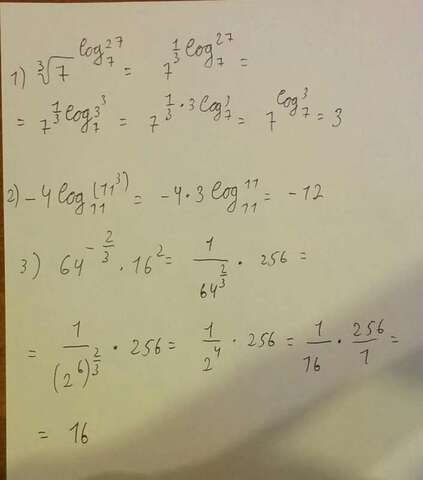 1) ∛7^(log₇27) = 7^(1/3 log₇27) =
= 7^(1/3 log₇3³) = 7^(1/3 · 3 log₇3) = 7^(log₇3) = 3
2) -4 log₁₁(11³) = -4 · 3 log₁₁11 = -12
3) 64^(-2/3) · 16² = 1/64^(2/3) · 256 =
= 1/(2⁶)^(2/3) · 256 = 1/2⁴ · 256 = 1/16 · 256/1 =
= 16